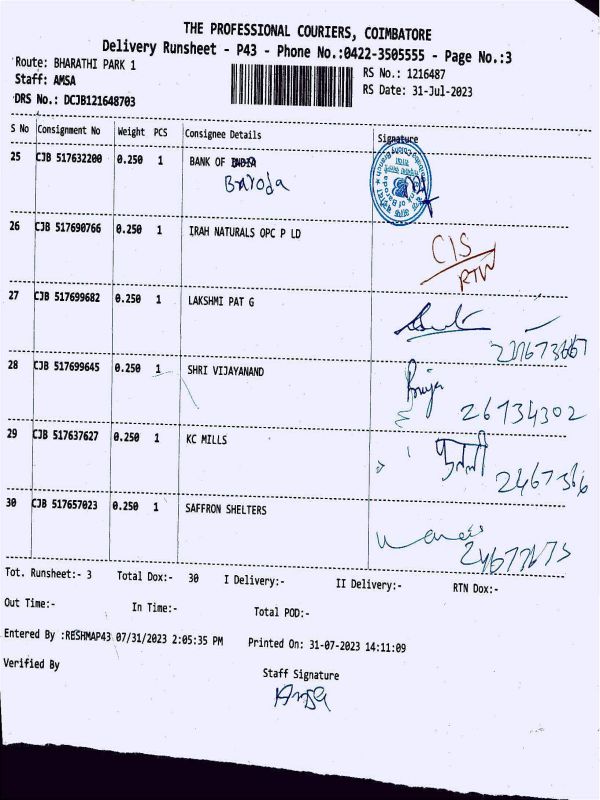 THE PROFESSIONAL COURIERS, COIMBATORE
Delivery Runsheet - P43 - Phone No.:0422-3505555 - Page No.:3
Route: BHARATHI PARK 1 RS No.: 1216487
Staff: AMSA RS Date: 31-Jul-2023
DRS No.: DCJB121648703
S No Consignment No Weight PCS Consignee Details Signature
25 CJB 517632200 0.250 1 BANK OF INDIA
Baroda
26 CJB 517690766 0.250 1 IRAH NATURALS OPC P LD
C/S
RTN
27 CJB 517699682 0.250 1 LAKSHMI PAT G
28 CJB 517699645 0.250 1 SHRI VIJAYANAND
26134302
29 CJB 517637627 0.250 1 KC MILLS
30 CJB 517657023 0.250 1 SAFFRON SHELTERS
Tot. Runsheet:- 3 Total Dox:- 30 I Delivery:- II Delivery:- RTN Dox:-
Out Time:- In Time:- Total POD:-
Entered By :RESHMAP43 07/31/2023 2:05:35 PM Printed On: 31-07-2023 14:11:09
Verified By Staff Signature
Amsa